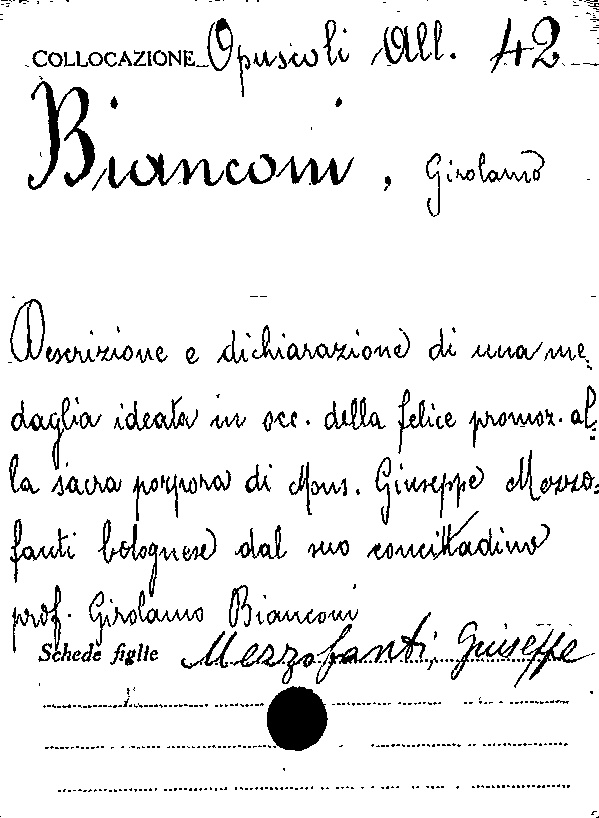 COLLOCAZIONE Opuscoli All. 42
Bianconi, Girolamo
Descrizione e dichiarazione di una me-
daglia ideata in occ. della felice promoz. al-
la sacra porpora di Mons. Giuseppe Mezzo-
fanti bolognese dal suo concittadino
prof. Girolamo Bianconi
Schede figlie Mezzofanti, Giuseppe